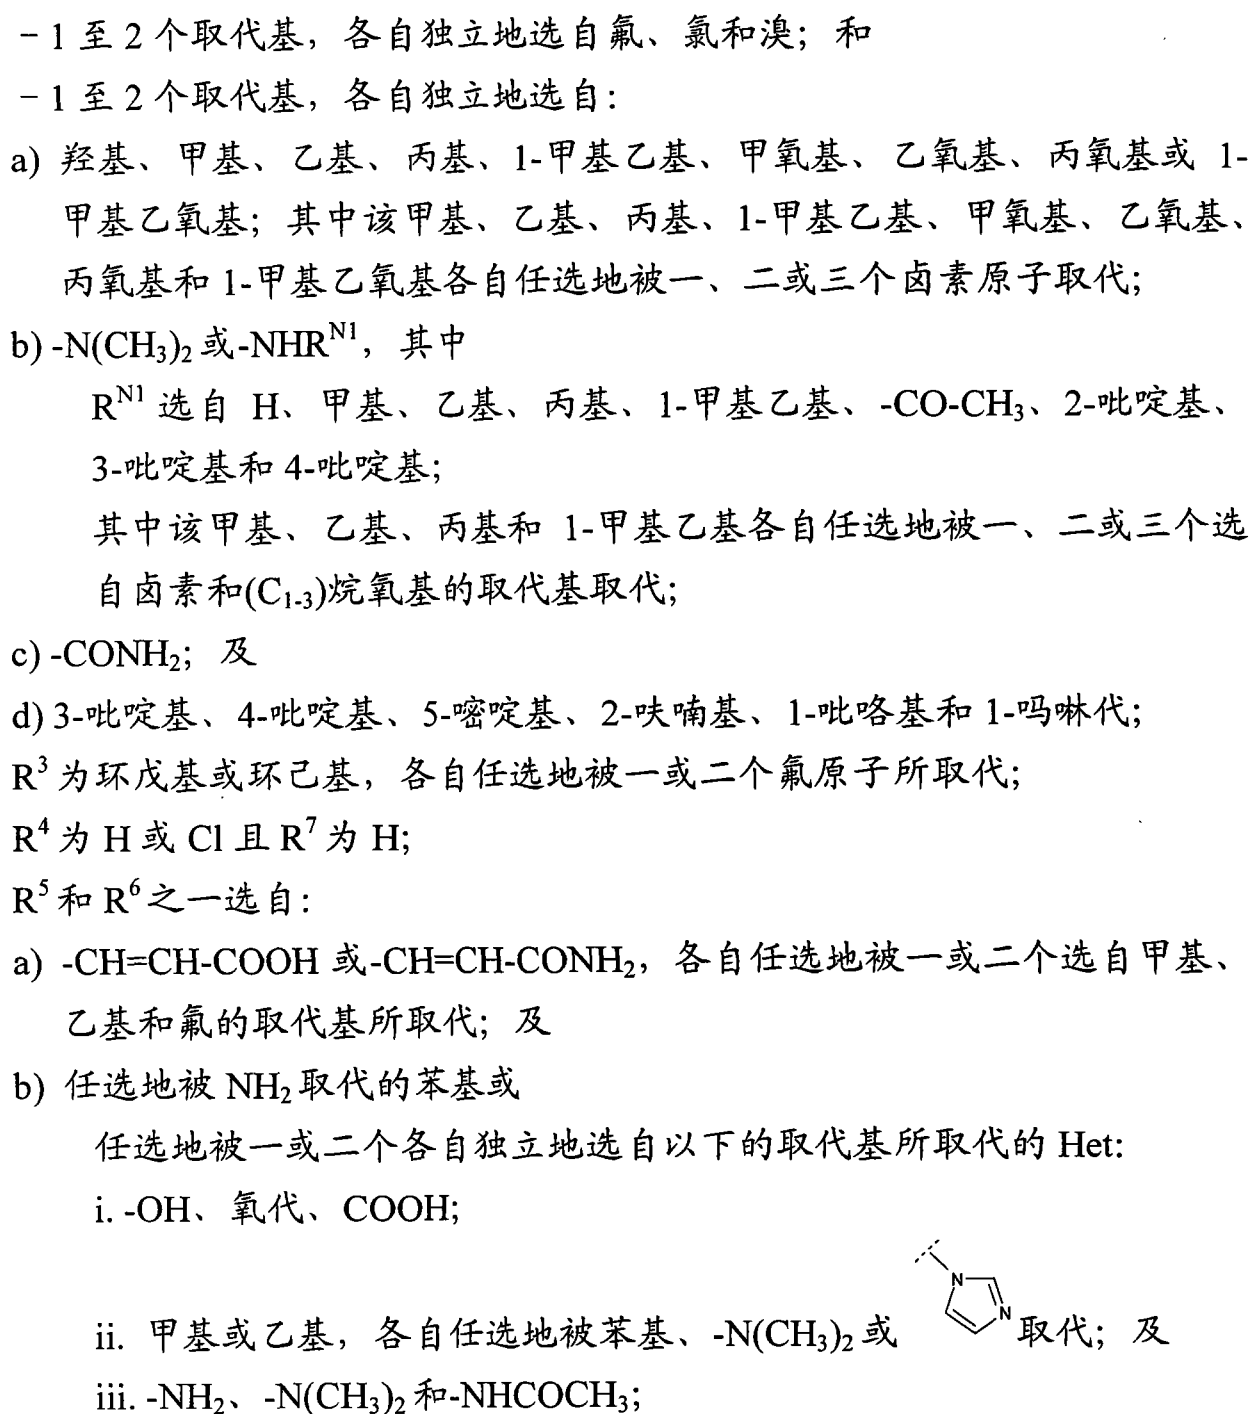 －1 至 2 个取代基，各自独立地选自氟、氯和溴；和
－1 至 2 个取代基，各自独立地选自：
a) 羟基、甲基、乙基、丙基、1-甲基乙基、甲氧基、乙氧基、丙氧基或 1-
甲基乙氧基；其中该甲基、乙基、丙基、1-甲基乙基、甲氧基、乙氧基、
丙氧基和 1-甲基乙氧基各自任选地被一、二或三个卤素原子取代；
b) -N(CH₃)₂或-NHRᴺ¹，其中
Rᴺ¹ 选自 H、甲基、乙基、丙基、1-甲基乙基、-CO-CH₃、2-吡啶基、
3-吡啶基和 4-吡啶基；
其中该甲基、乙基、丙基和 1-甲基乙基各自任选地被一、二或三个选
自卤素和(C₁₋₃)烷氧基的取代基取代；
c) -CONH₂；及
d) 3-吡啶基、4-吡啶基、5-嘧啶基、2-呋喃基、1-吡咯基和 1-吗啉代；
R³为环戊基或环己基，各自任选地被一或二个氟原子所取代；
R⁴为 H 或 Cl 且 R⁷为 H；
R⁵和 R⁶之一选自：
a) -CH=CH-COOH 或-CH=CH-CONH₂，各自任选地被一或二个选自甲基、
乙基和氟的取代基所取代；及
b) 任选地被 NH₂取代的苯基或
任选地被一或二个各自独立地选自以下的取代基所取代的 Het:
i. -OH、氧代、COOH;
N
N
ii. 甲基或乙基，各自任选地被苯基、-N(CH₃)₂或 取代；及
iii. -NH₂、-N(CH₃)₂和-NHCOCH₃;